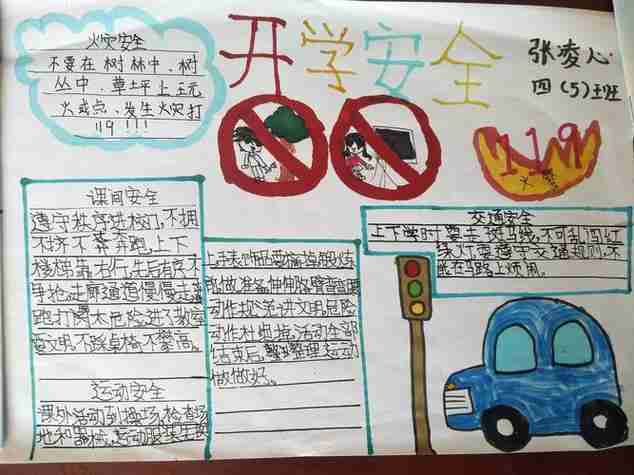 开学安全
张凌心
四(5)班
火灾安全
不要在树林中、树
丛中、草坪上玩
火或点、发生火灾打
119!!!
119
火警
课间安全
遵守秩序进校门,不拥
不挤不奔跑,上下
楼梯靠右行,先后有序不
争抢,走廊通道慢慢走,
跑打闹太危险,进了教室
要文明,不踩桌椅不攀高。
运动安全
课外活动到操场,检查场
地和器械,运动服装
做准备,伸伸胳膊
动作规范讲文明,危险
动作杜绝掉,活动全部
结束后,整理运动
做做好。
交通安全
上下学时要走斑马线,不可乱闯红
绿灯要遵守交通规则,不
能在马路上烦闹。